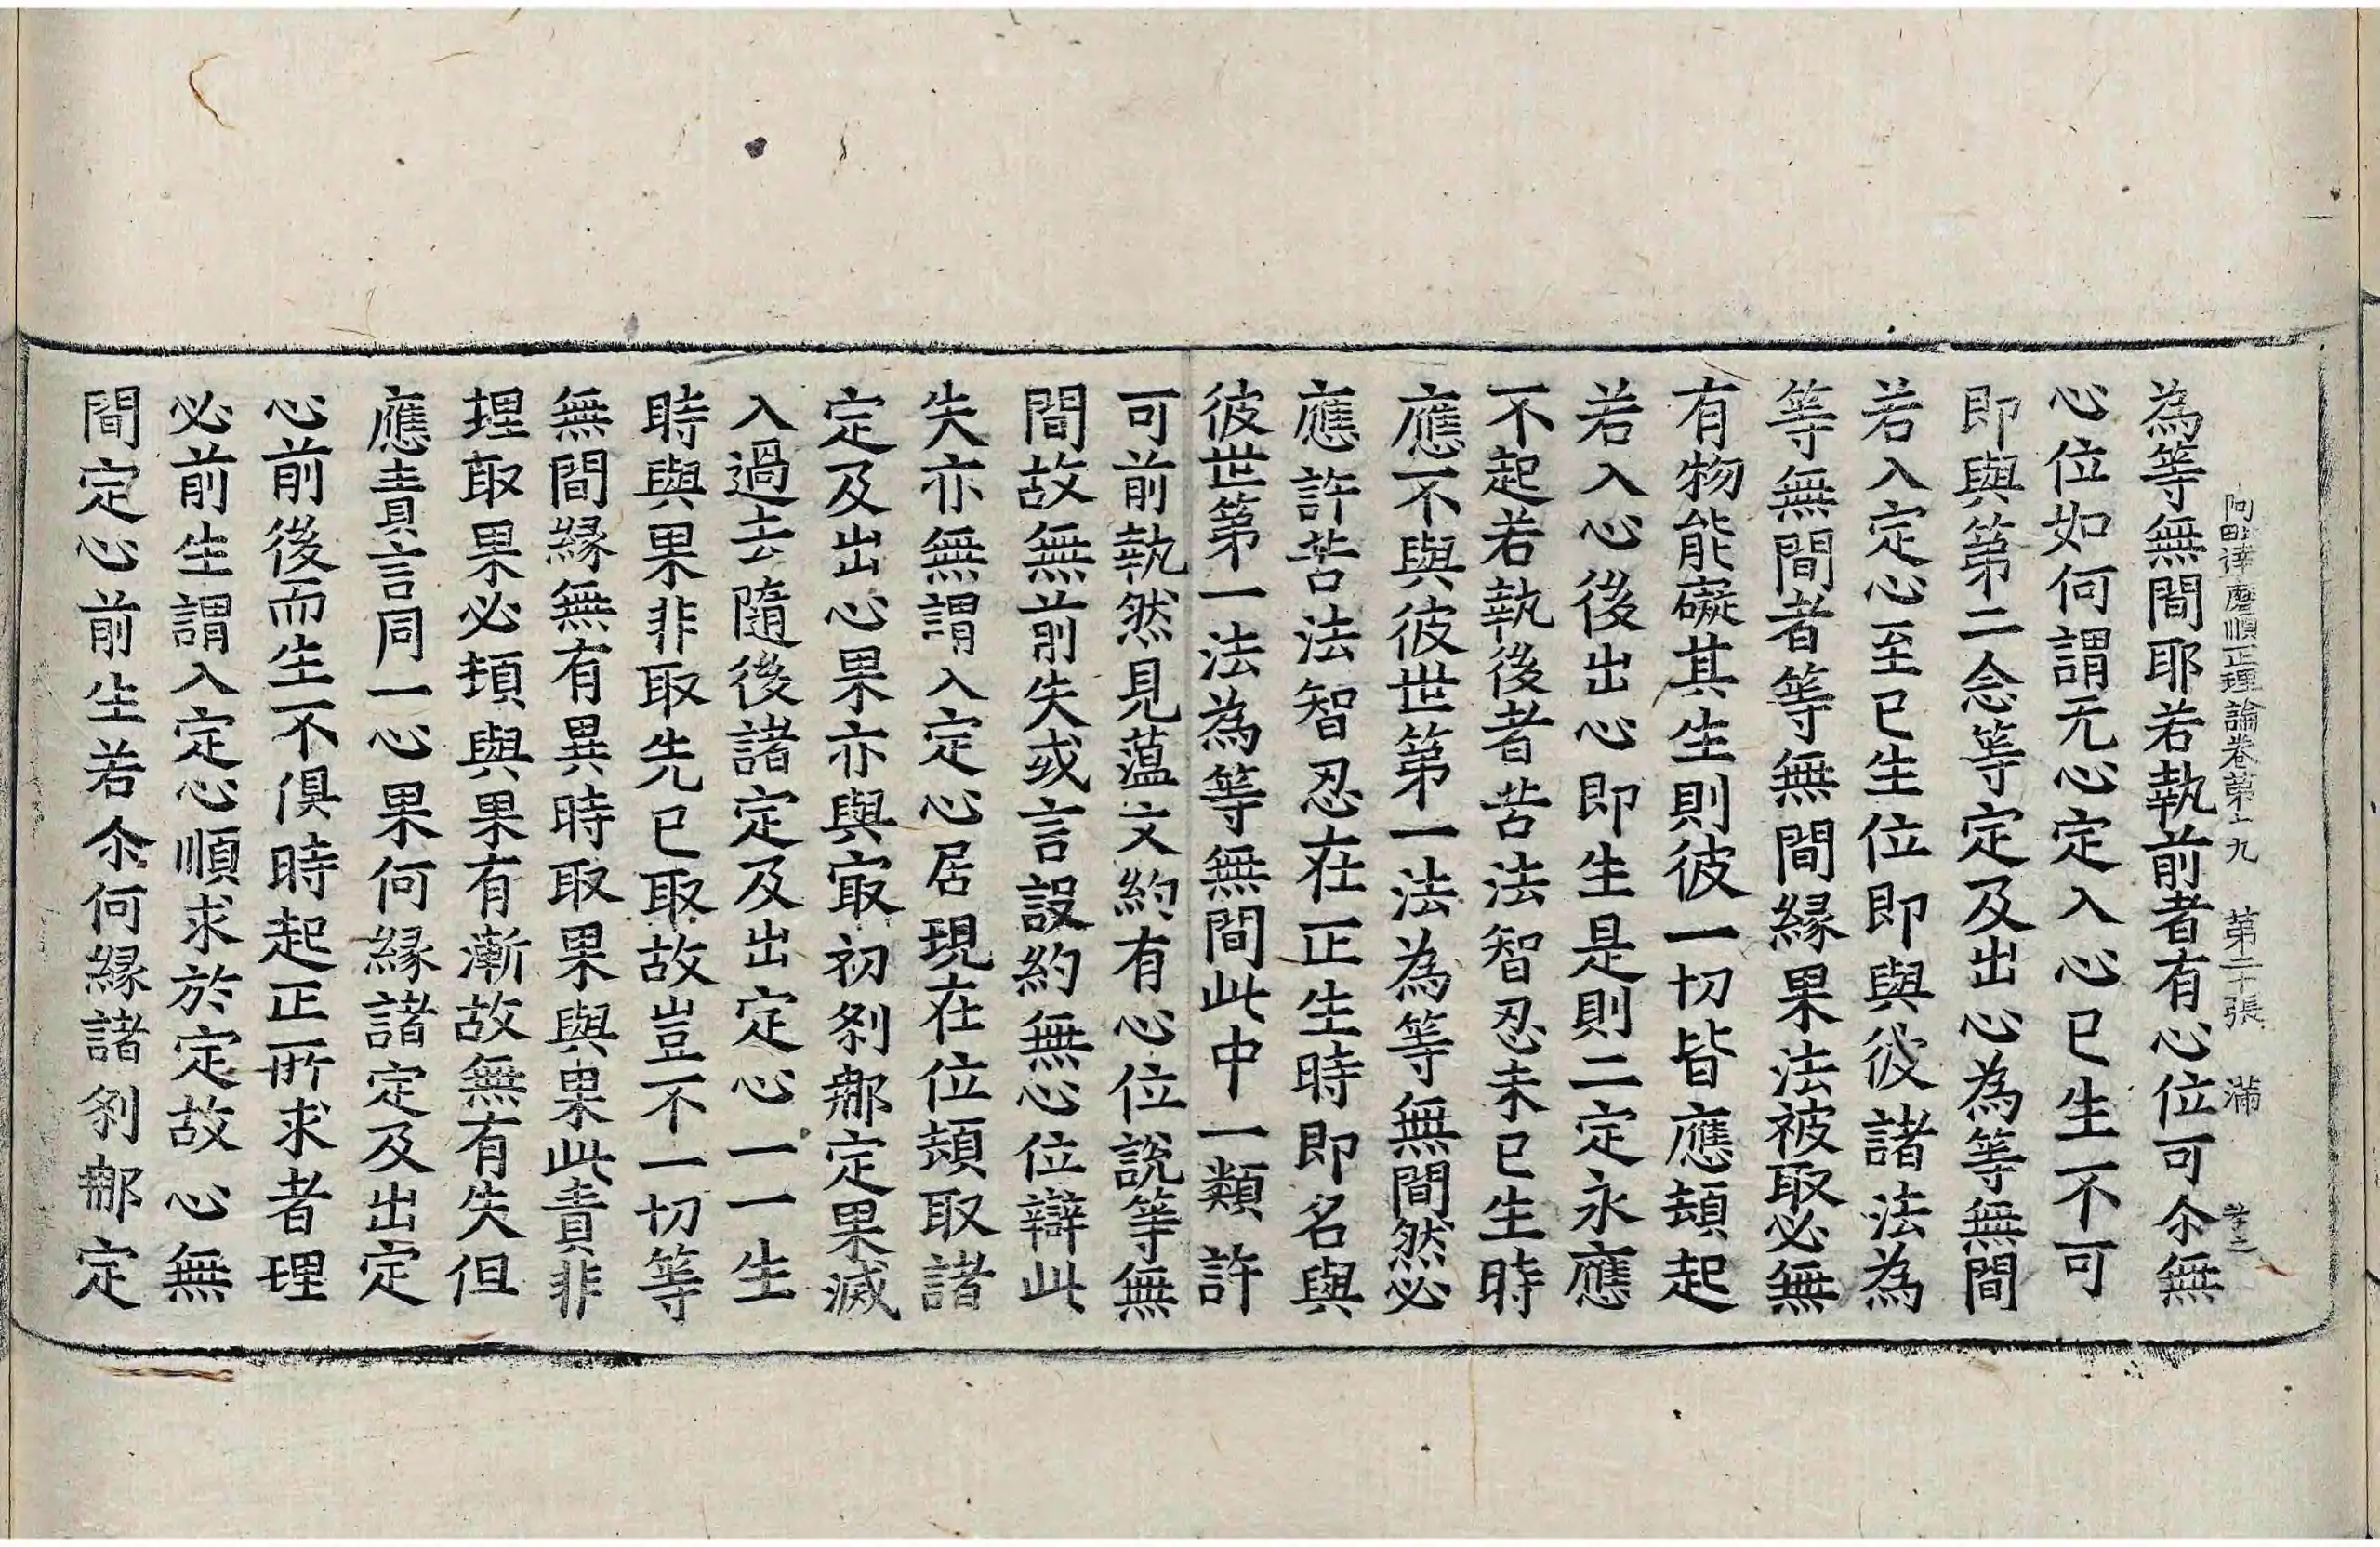 為等無間耶若執前者有心位可尒無
阿毗達磨順正理論卷第十九 第二十張 滿
心位如何謂无心定入心已生不可
即與第二念等定及出心為等無間
若入定心至已生位即與彼諸法為
等無間者等無間緣果法被取必無
有物能礙其生則彼一切皆應頓起
若入心後出心即生是則二定永應
不起若執後者苦法智忍未已生時
應不與彼世第一法為等無間然必
應許苦法智忍在正生時即名與
彼世第一法為等無間此中一類許
可前執然見薀文約有心位說等無
間故無前失或言設約無心位辯此
失亦無謂入定心居現在位頓取諸
定及出心果亦與㝡初剎那定果滅
入過去隨後諸定及出定心一一生
時與果非取先已取故豈不一切等
無間緣無有異時取果與果此責非
理取果必頓與果有漸故無有失但
應責言同一心果何緣諸定及出定
心前後而生不俱時起正所求者理
必前生謂入定心順求於定故心無
間定心前生若尒何緣諸剎那定